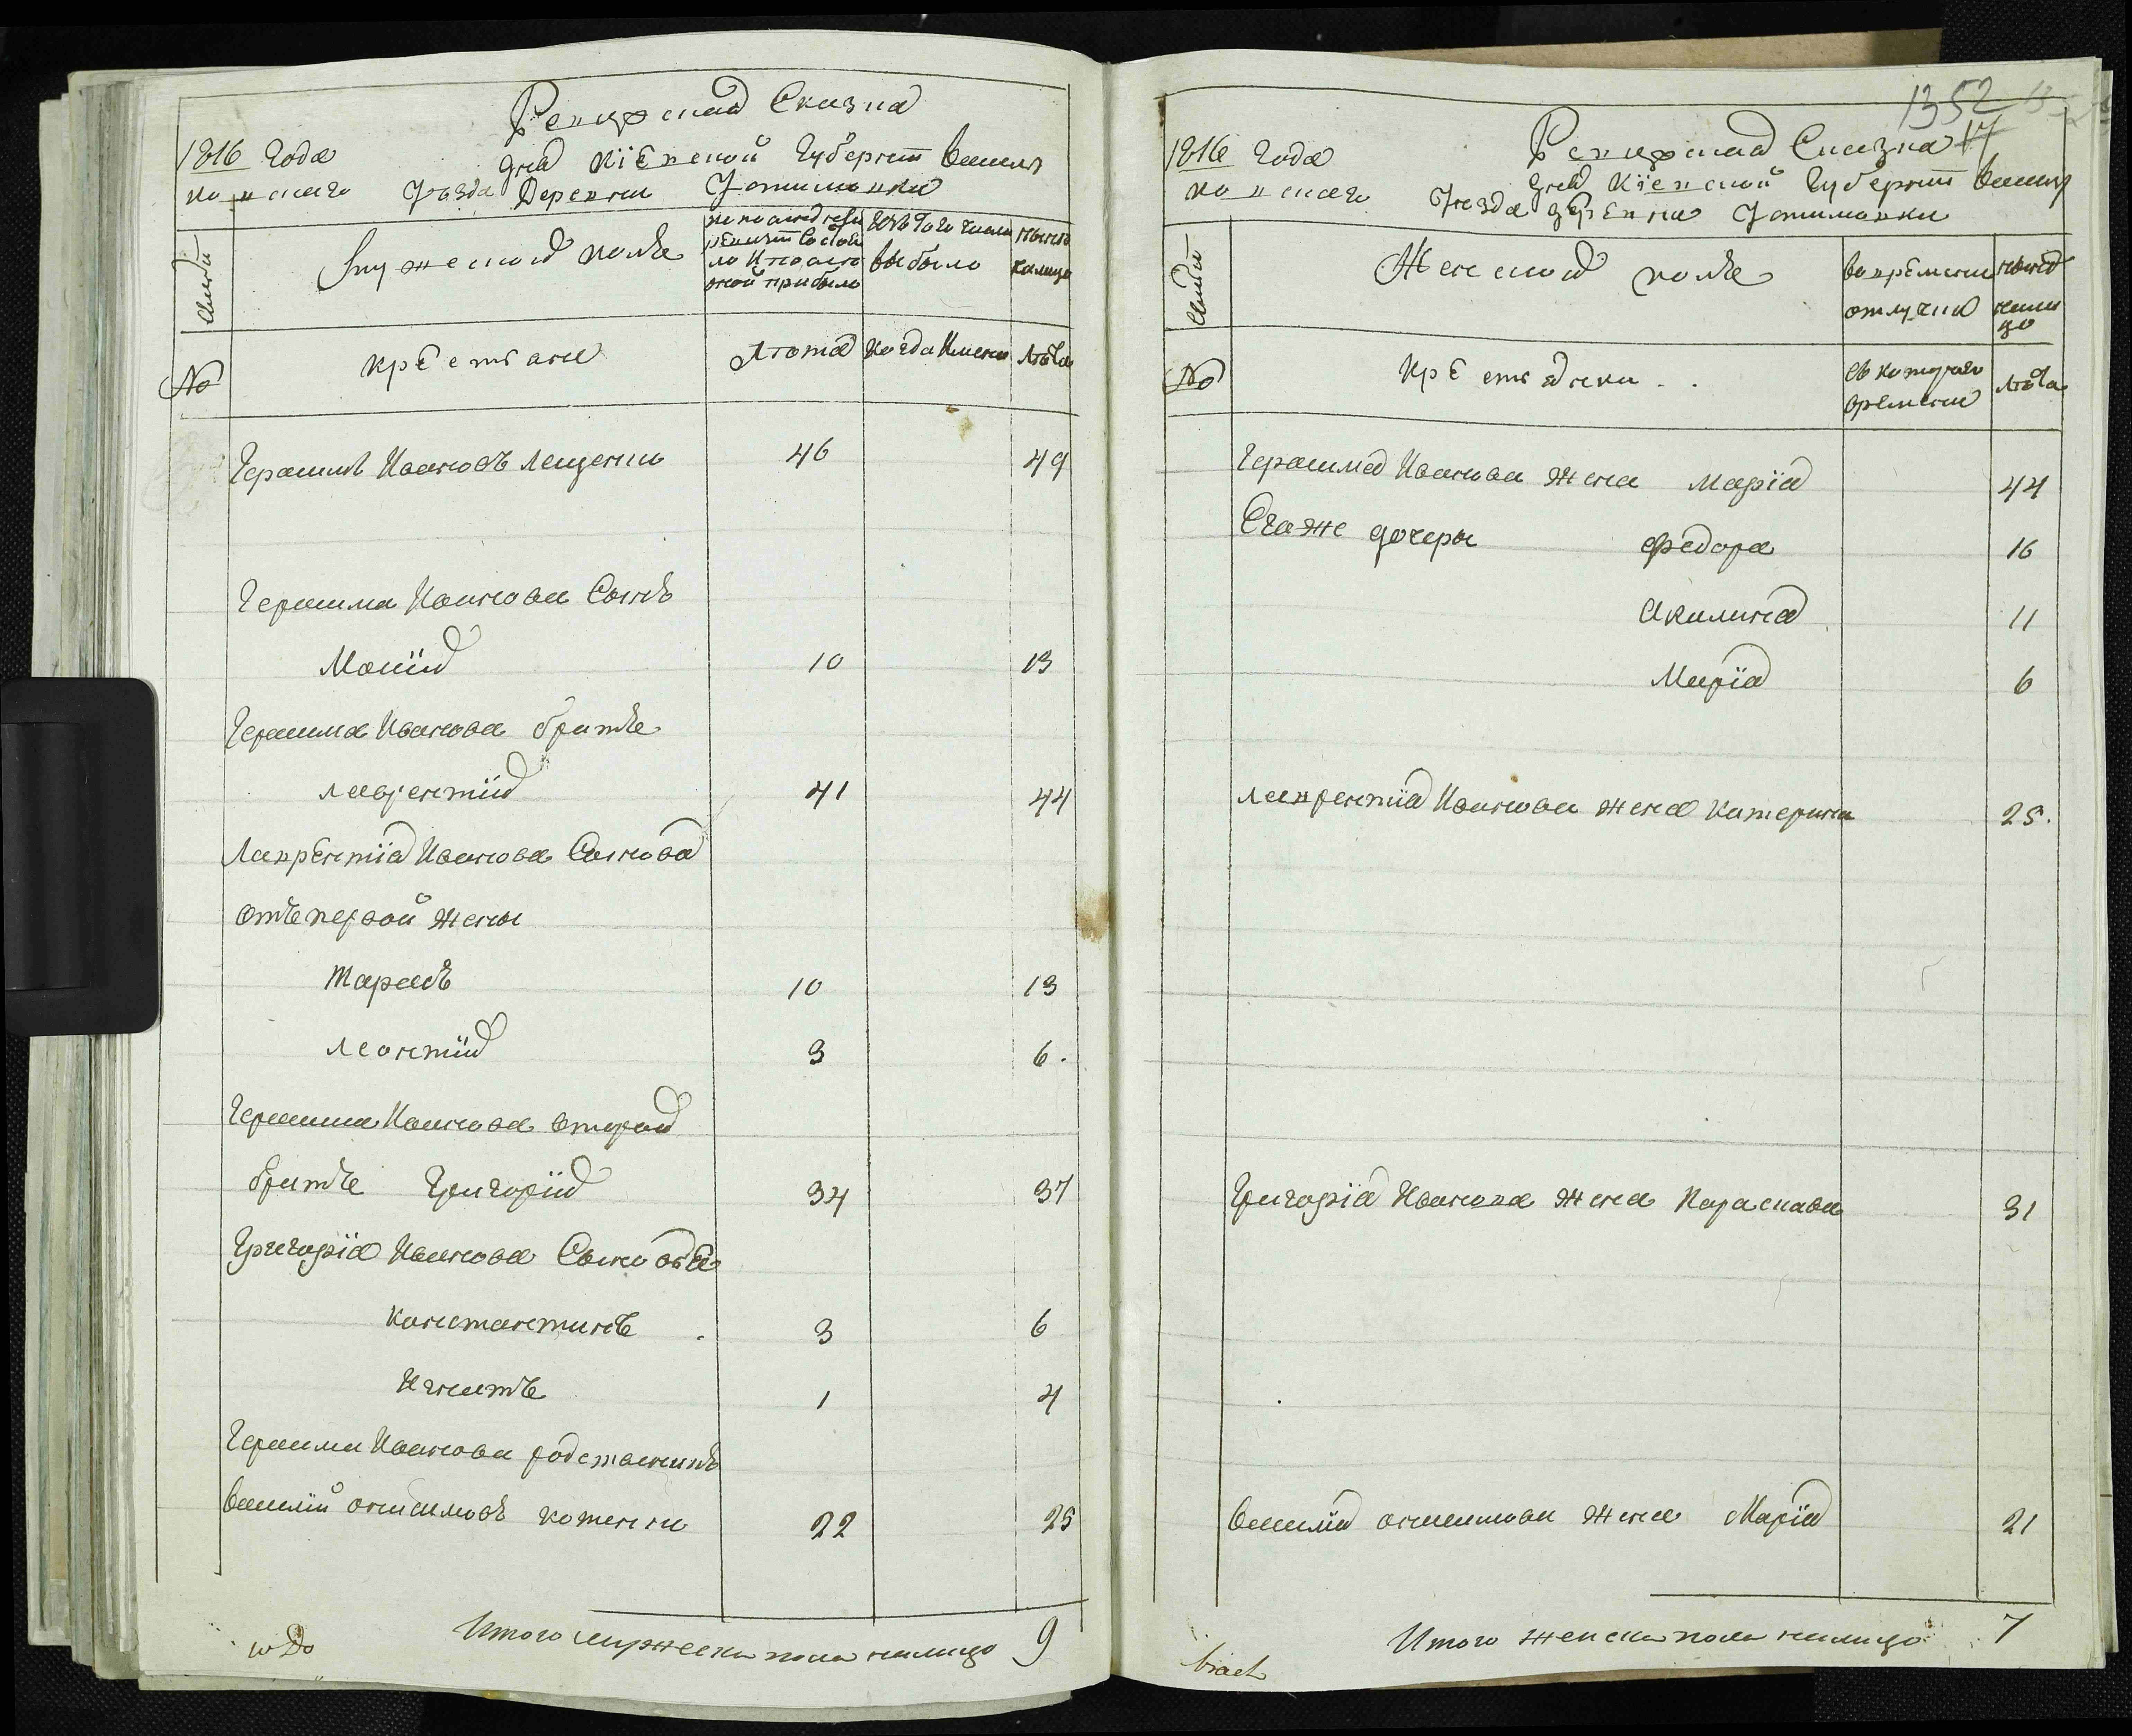 Ревизская Сказка
1816 Года
дня Кіевской Губерніи Василь
ковскаго Уезда Деревни Устимовки
Семьи
Мужеской полъ
по последней ревизіи состояло и после оной прибыло
изъ того числа выбыло
ныне налицо
№
крестьяне
Лета
Когда Имено
Лета
Герасимъ Ивановъ Лещенко 46 49
Герасима Иванова Сынъ
Мосій 10 13
Герасима Иванова братъ
Лаврентій 41 44
Лаврентія Иванова Сыновя
отъ первой жены
Тарасъ 10 13
Леонтій 3 6.
Герасима Иванова вторій
братъ Григорій 34 37
Григорія Иванова Сыновя
Константинъ 3 6
Игнатъ 1 4
Герасима Иванова родственникъ
Василій Онисимовъ 22 25
Итого мужеска пола налицо 9
1352
17
1816 Года
Ревизская Сказка
дня Кіевской Губерніи Василь
ковскаго Уезда деревни Устимовки
Семьи
Женской полъ
во временной отлучки
ныне налицо
№
Крестьянки
съ котораго времени
Лета
Герасима Иванова жена Марія 44
Егоже дочеры Федора 16
Акилина 11
Марія 6
Лаврентія Иванова жена Катерина 25.
Григорія Иванова жена Параскева 31
Василія Онисимова жена Марія 21
Итого женска пола налицо 7